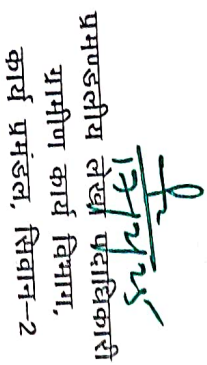 17/7/25
प्रमण्डलीय लेखा पदाधिकारी
ग्रामीण कार्य विभाग,
कार्य प्रमंडल, सिवान-2